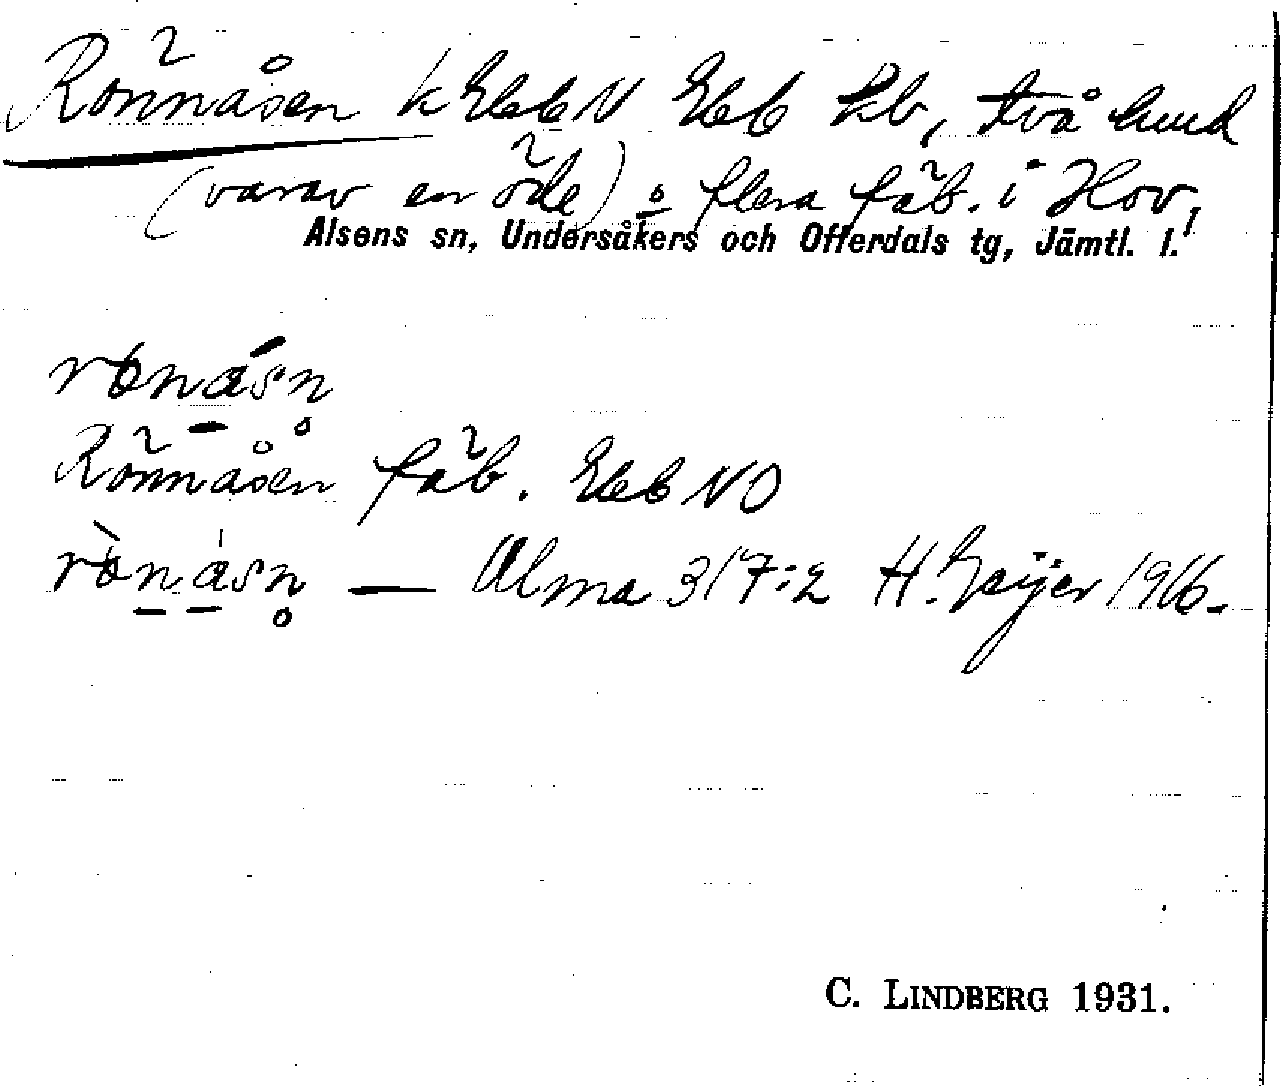 Rönnåsen k EkbN Ekb kb, två hmd
(varav en öde) o flera fäb. i Hov,
Alsens sn, Undersåkers och Offerdals tg, Jämtl. l.
rönåsn
Rönnåsen fäb. Ekb NO
rönåsn — Alma 317:2 H. Geijer 1916.
C. LINDBERG 1931.